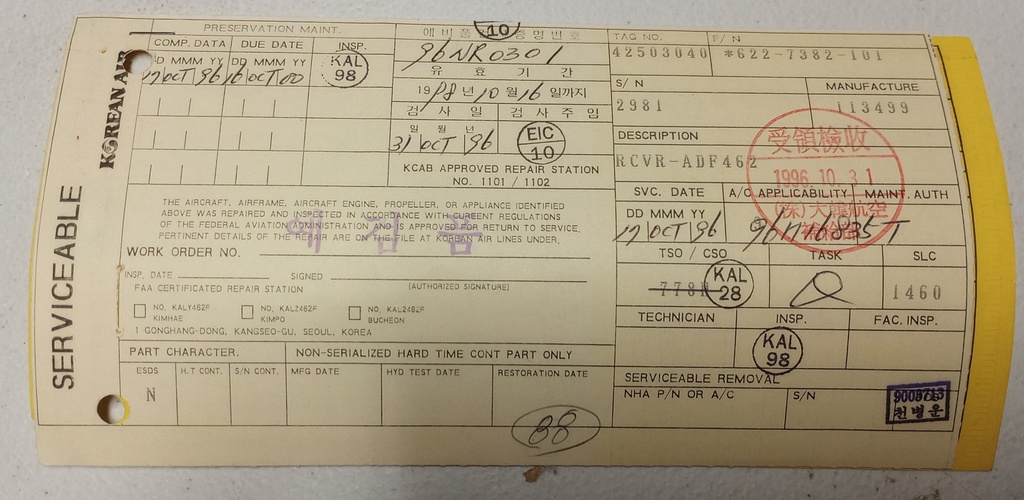 SERVICEABLE
KOREAN AIR
PRESERVATION MAINT.
COMP. DATA DUE DATE INSP.
DD MMM YY DD MMM YY
17 OCT 96 16 OCT 00
KAL 98
10
증명번호
96NR0301
유 효 기 간
1998년 10월 16일까지
검 사 일 검 사 주 임
일 월 년
31 OCT 96
EIC 10
KCAB APPROVED REPAIR STATION
NO. 1101 / 1102
THE AIRCRAFT, AIRFRAME, AIRCRAFT ENGINE, PROPELLER, OR APPLIANCE IDENTIFIED
ABOVE WAS REPAIRED AND INSPECTED IN ACCORDANCE WITH CURRENT REGULATIONS
OF THE FEDERAL AVIATION ADMINISTRATION AND IS APPROVED FOR RETURN TO SERVICE.
PERTINENT DETAILS OF THE REPAIR ARE ON THE FILE AT KOREAN AIR LINES UNDER,
WORK ORDER NO.
INSP. DATE SIGNED
(AUTHORIZED SIGNATURE)
FAA CERTIFICATED REPAIR STATION
NO. KALY462F KIMHAE
NO. KALZ462F KIMPO
NO. KAL2462F BUCHEON
1 GONGHANG-DONG, KANGSEO-GU, SEOUL, KOREA
PART CHARACTER. NON-SERIALIZED HARD TIME CONT PART ONLY
ESDS H.T CONT. S/N CONT. MFG DATE HYD TEST DATE RESTORATION DATE
N
88
TAG NO. P/N
42503040 *622-7382-101
S/N MANUFACTURE
2981 113499
DESCRIPTION
RCVR-ADF462
受領檢收
1996.10.31
(株)大韓航空
SVC. DATE A/C APPLICABILITY MAINT. AUTH
DD MMM YY
17 OCT 96
TSO / CSO TASK SLC
KAL 28
1460
TECHNICIAN INSP. FAC. INSP.
KAL 98
SERVICEABLE REMOVAL
NHA P/N OR A/C S/N
천병운